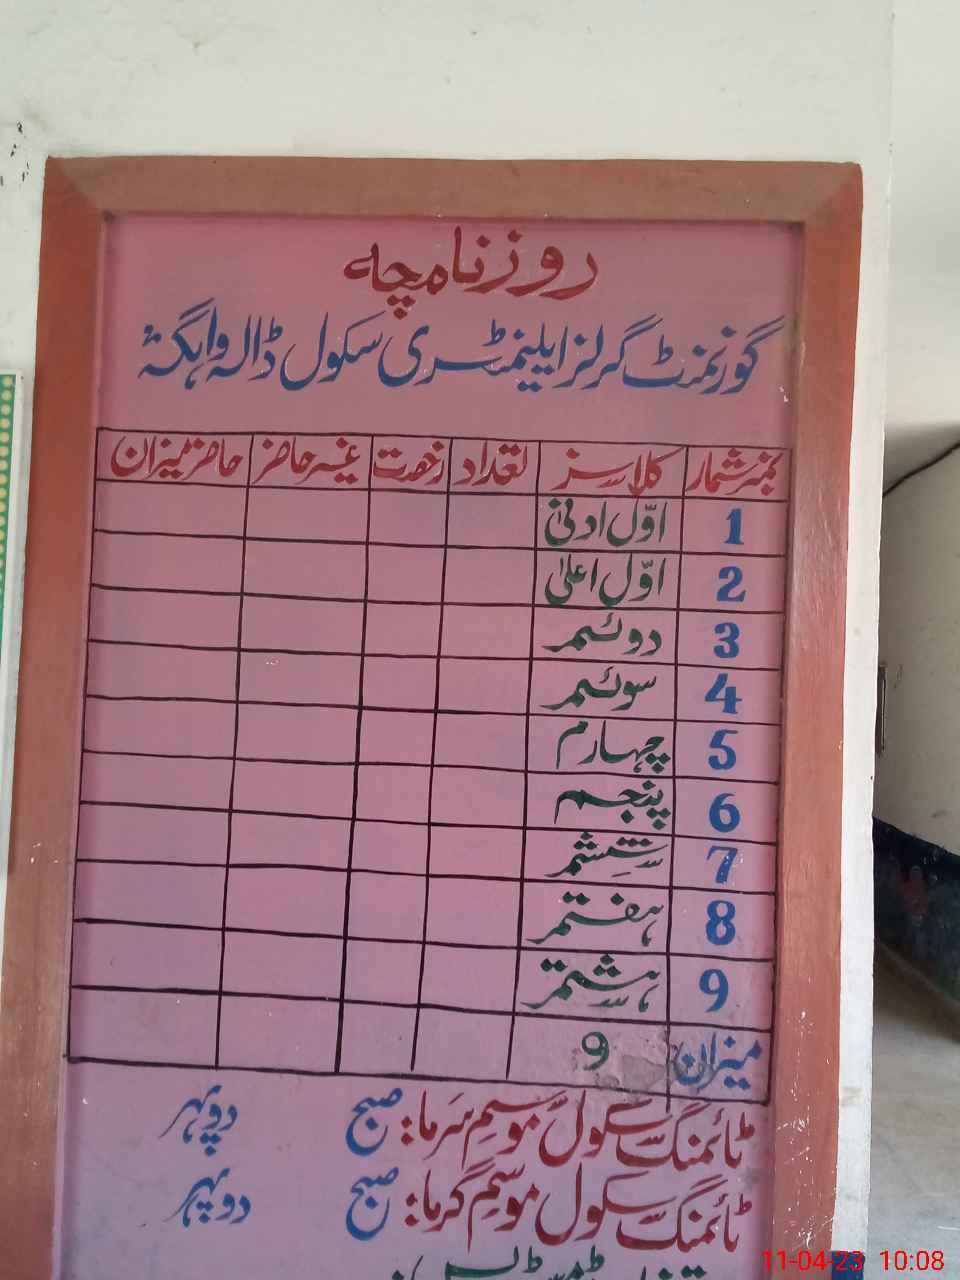 روزنامچہ
گورنمنٹ گرلز ایلیمنٹری سکول ڈالہ واہگہ
نمبر شمار کلاسز تعداد رخصت غیر حاضر حاضر میزان
1 اوّل ادنیٰ
2 اوّل اعلیٰ
3 دوئم
4 سوئم
5 چہارم
6 پنجم
7 ششم
8 ہفتم
9 ہشتم
میزان 9
ٹائمنگ سکول موسمِ سَرما: صبح دوپہر
ٹائمنگ سکول موسمِ گرما: صبح دوپہر
11-04-23 10:08